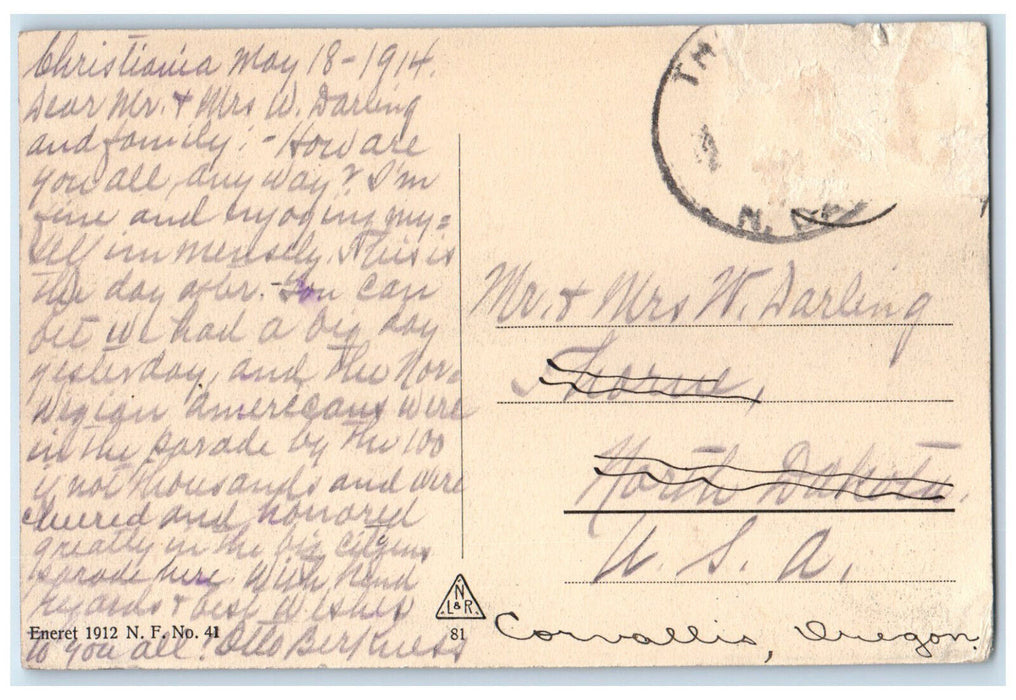 Christiania May 18-1914.
Dear Mr. & Mrs W. Darling
and family:- How are
you all, any way? I'm
fine and enjoying my=
self immensely. This is
the day after. - You can
bet we had a big day
yesterday, and the Nor=
wegian Americans were
in the parade by the 100
if not thousands and were
cheered and honored
greatly in the big citizens
parade here. With kind
regards & best wishes
to you all! Otto Berkness
Eneret 1912 N. F. No. 41
N
L&R.
81
TH
N. DAK
Mr. & Mrs W. Darling
Thorne,
North Dakota.
U. S. A.
Corvallis, Oregon.